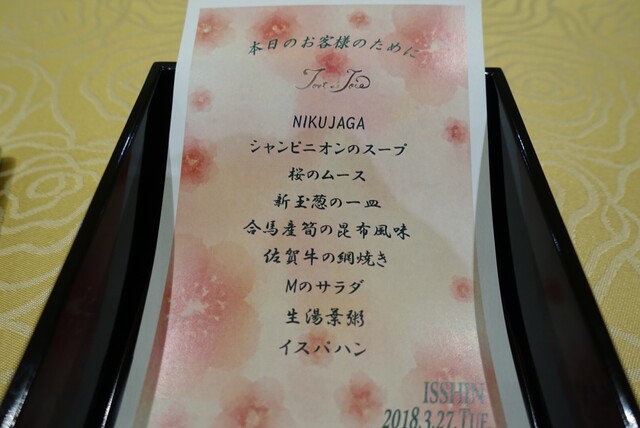 本日のお客様のために
NIKUJAGA
シャンピニオンのスープ
桜のムース
新玉葱の一皿
合馬産筍の昆布風味
佐賀牛の網焼き
Mのサラダ
生湯葉粥
イスパハン
ISSHIN
2018.3.27.TUE